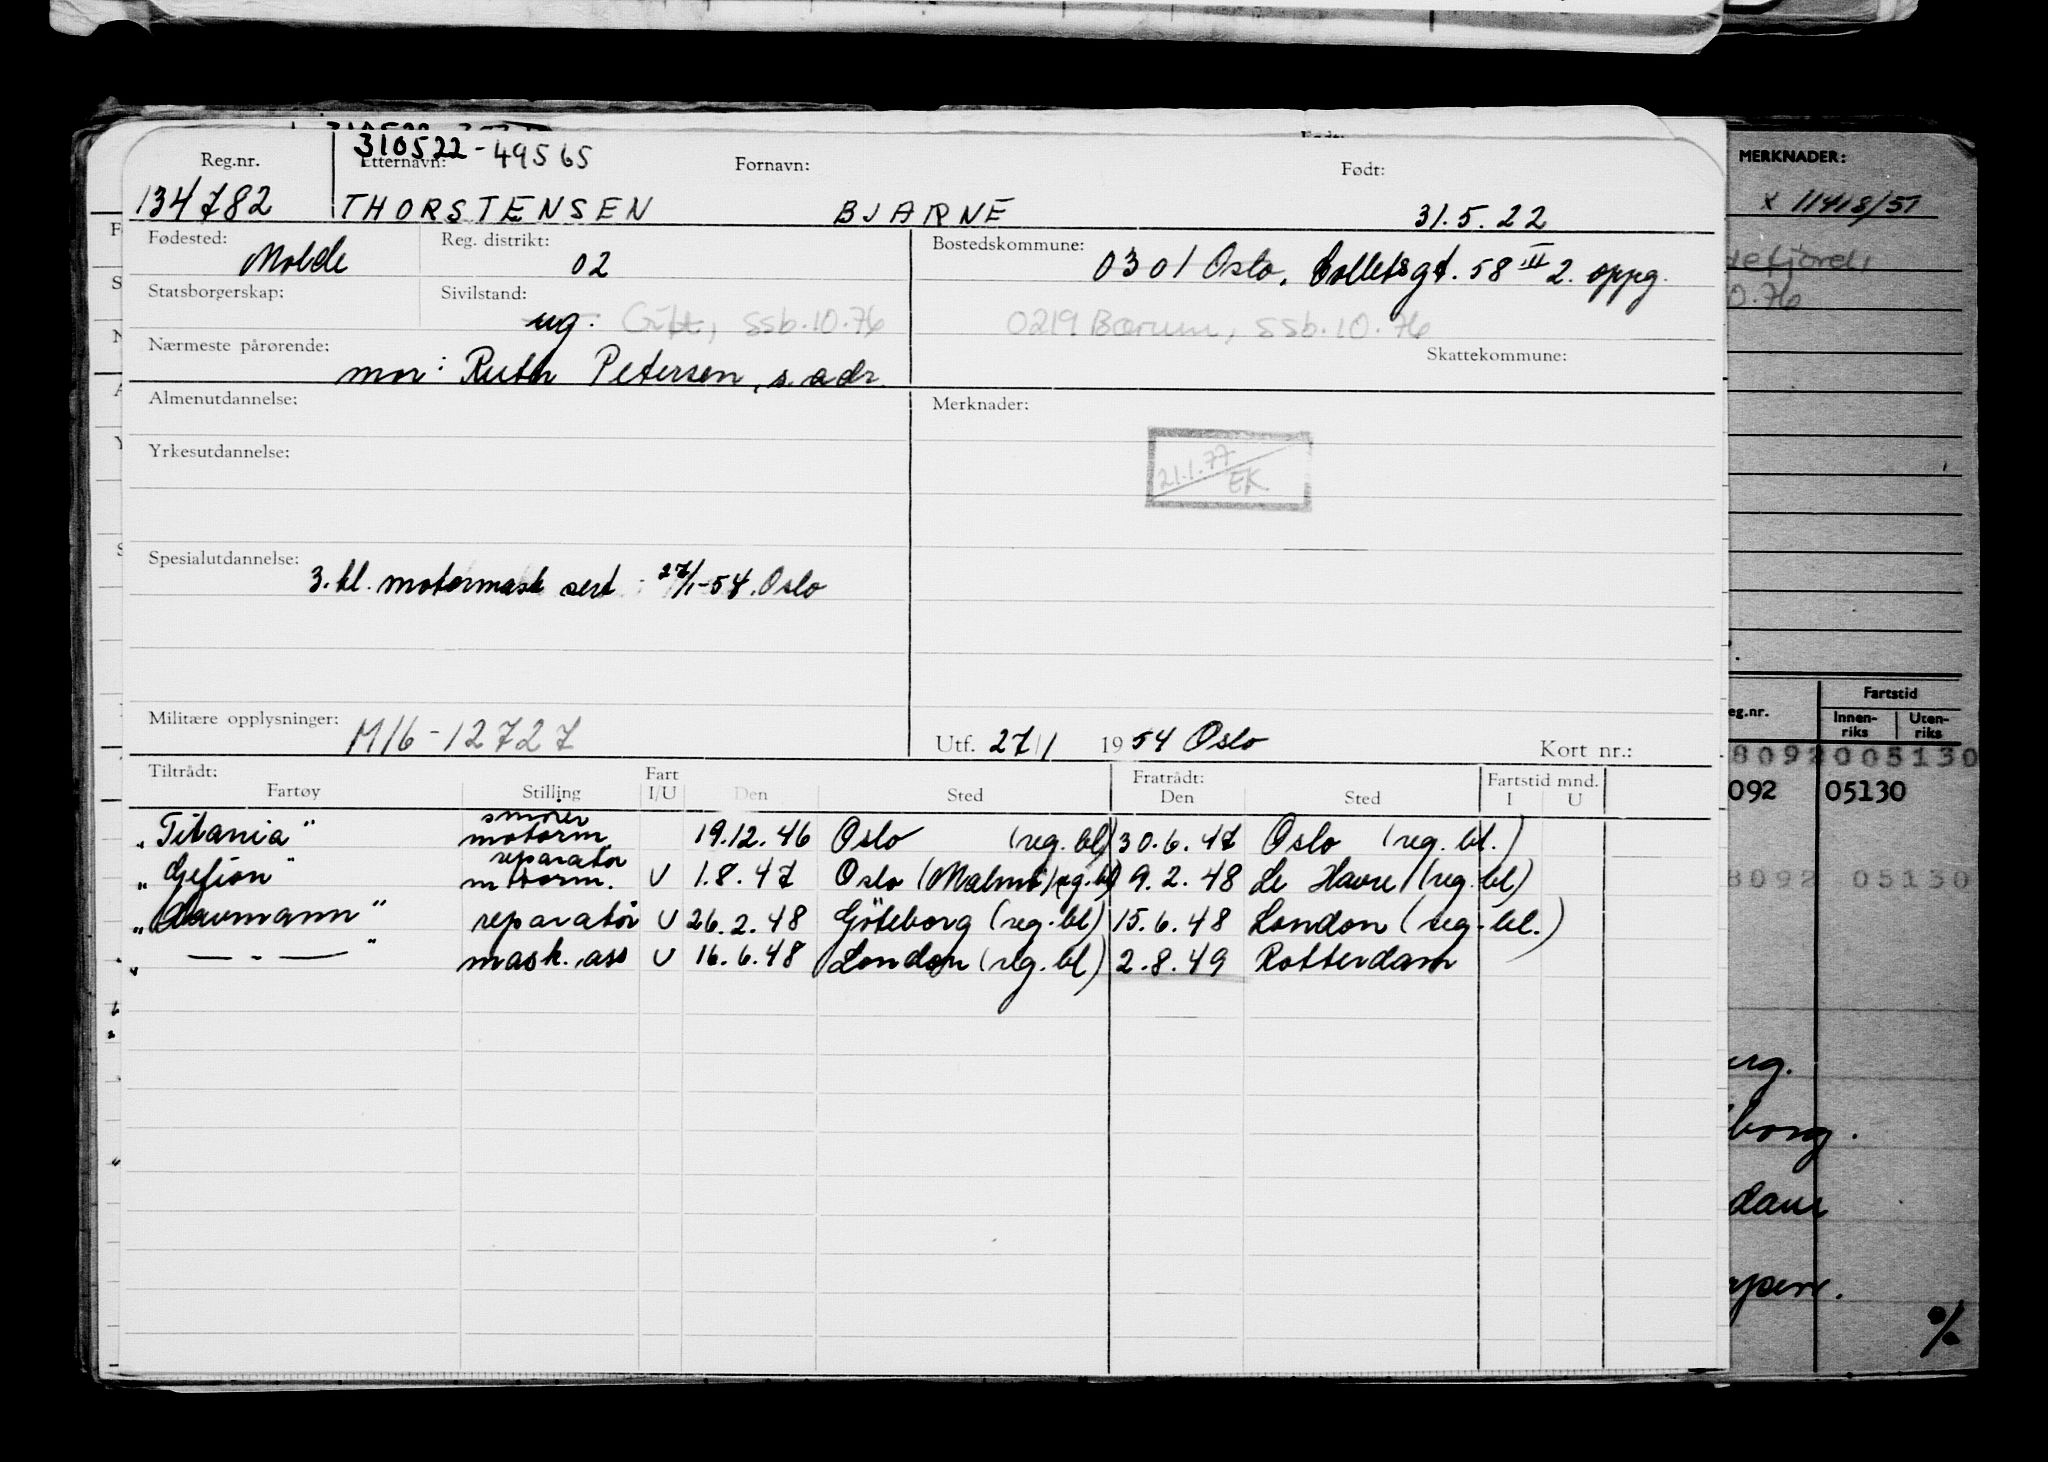 310522-49565
Reg.nr. Etternavn: Fornavn: Født:
134782 THORSTENSEN BJARNE 31.5.22
Fødested: Molde Reg. distrikt: 02 Bostedskommune: 0301 Oslo, Colletsgt. 58 III 2. oppg.
Statsborgerskap: Sivilstand: ug. Gift, ssb.10.76 0219 Bærum, ssb.10.76
Nærmeste pårørende: mor: Ruth Petersen, s. adr. Skattekommune:
Almenutdannelse: Merknader:
21.1.77 EK
Yrkesutdannelse:
Spesialutdannelse: 3. kl. motormask sert 27/1-54. Oslo
Militære opplysninger: M16-12727 Utf. 27/1 1954 Oslo Kort nr.:
Tiltrådt: Fart Fratrådt: Fartstid mnd.
Fartøy Stilling I/U Den Sted Den Sted I U
"Titania" smører motorm 19.12.46 Oslo (reg. bl) 30.6.47 Oslo (reg. bl.)
"Gefion" reparatør motorm. U 1.8.47 Oslo (Malmö) (reg. bl) 9.2.48 Le Havre (reg. bl)
reparatør U 26.2.48 Göteborg (reg. bl) 15.6.48 London (reg. bl.)
" — - — " mask. ass U 16.6.48 London (reg. bl) 2.8.49 Rotterdam
MERKNADER:
x 11418/51
defjord
0.76
eg.nr. Fartstid
Innen-riks Uten-riks
8092 005130
092 05130
8092 05130
erg.
borg.
dam
rpen.
%